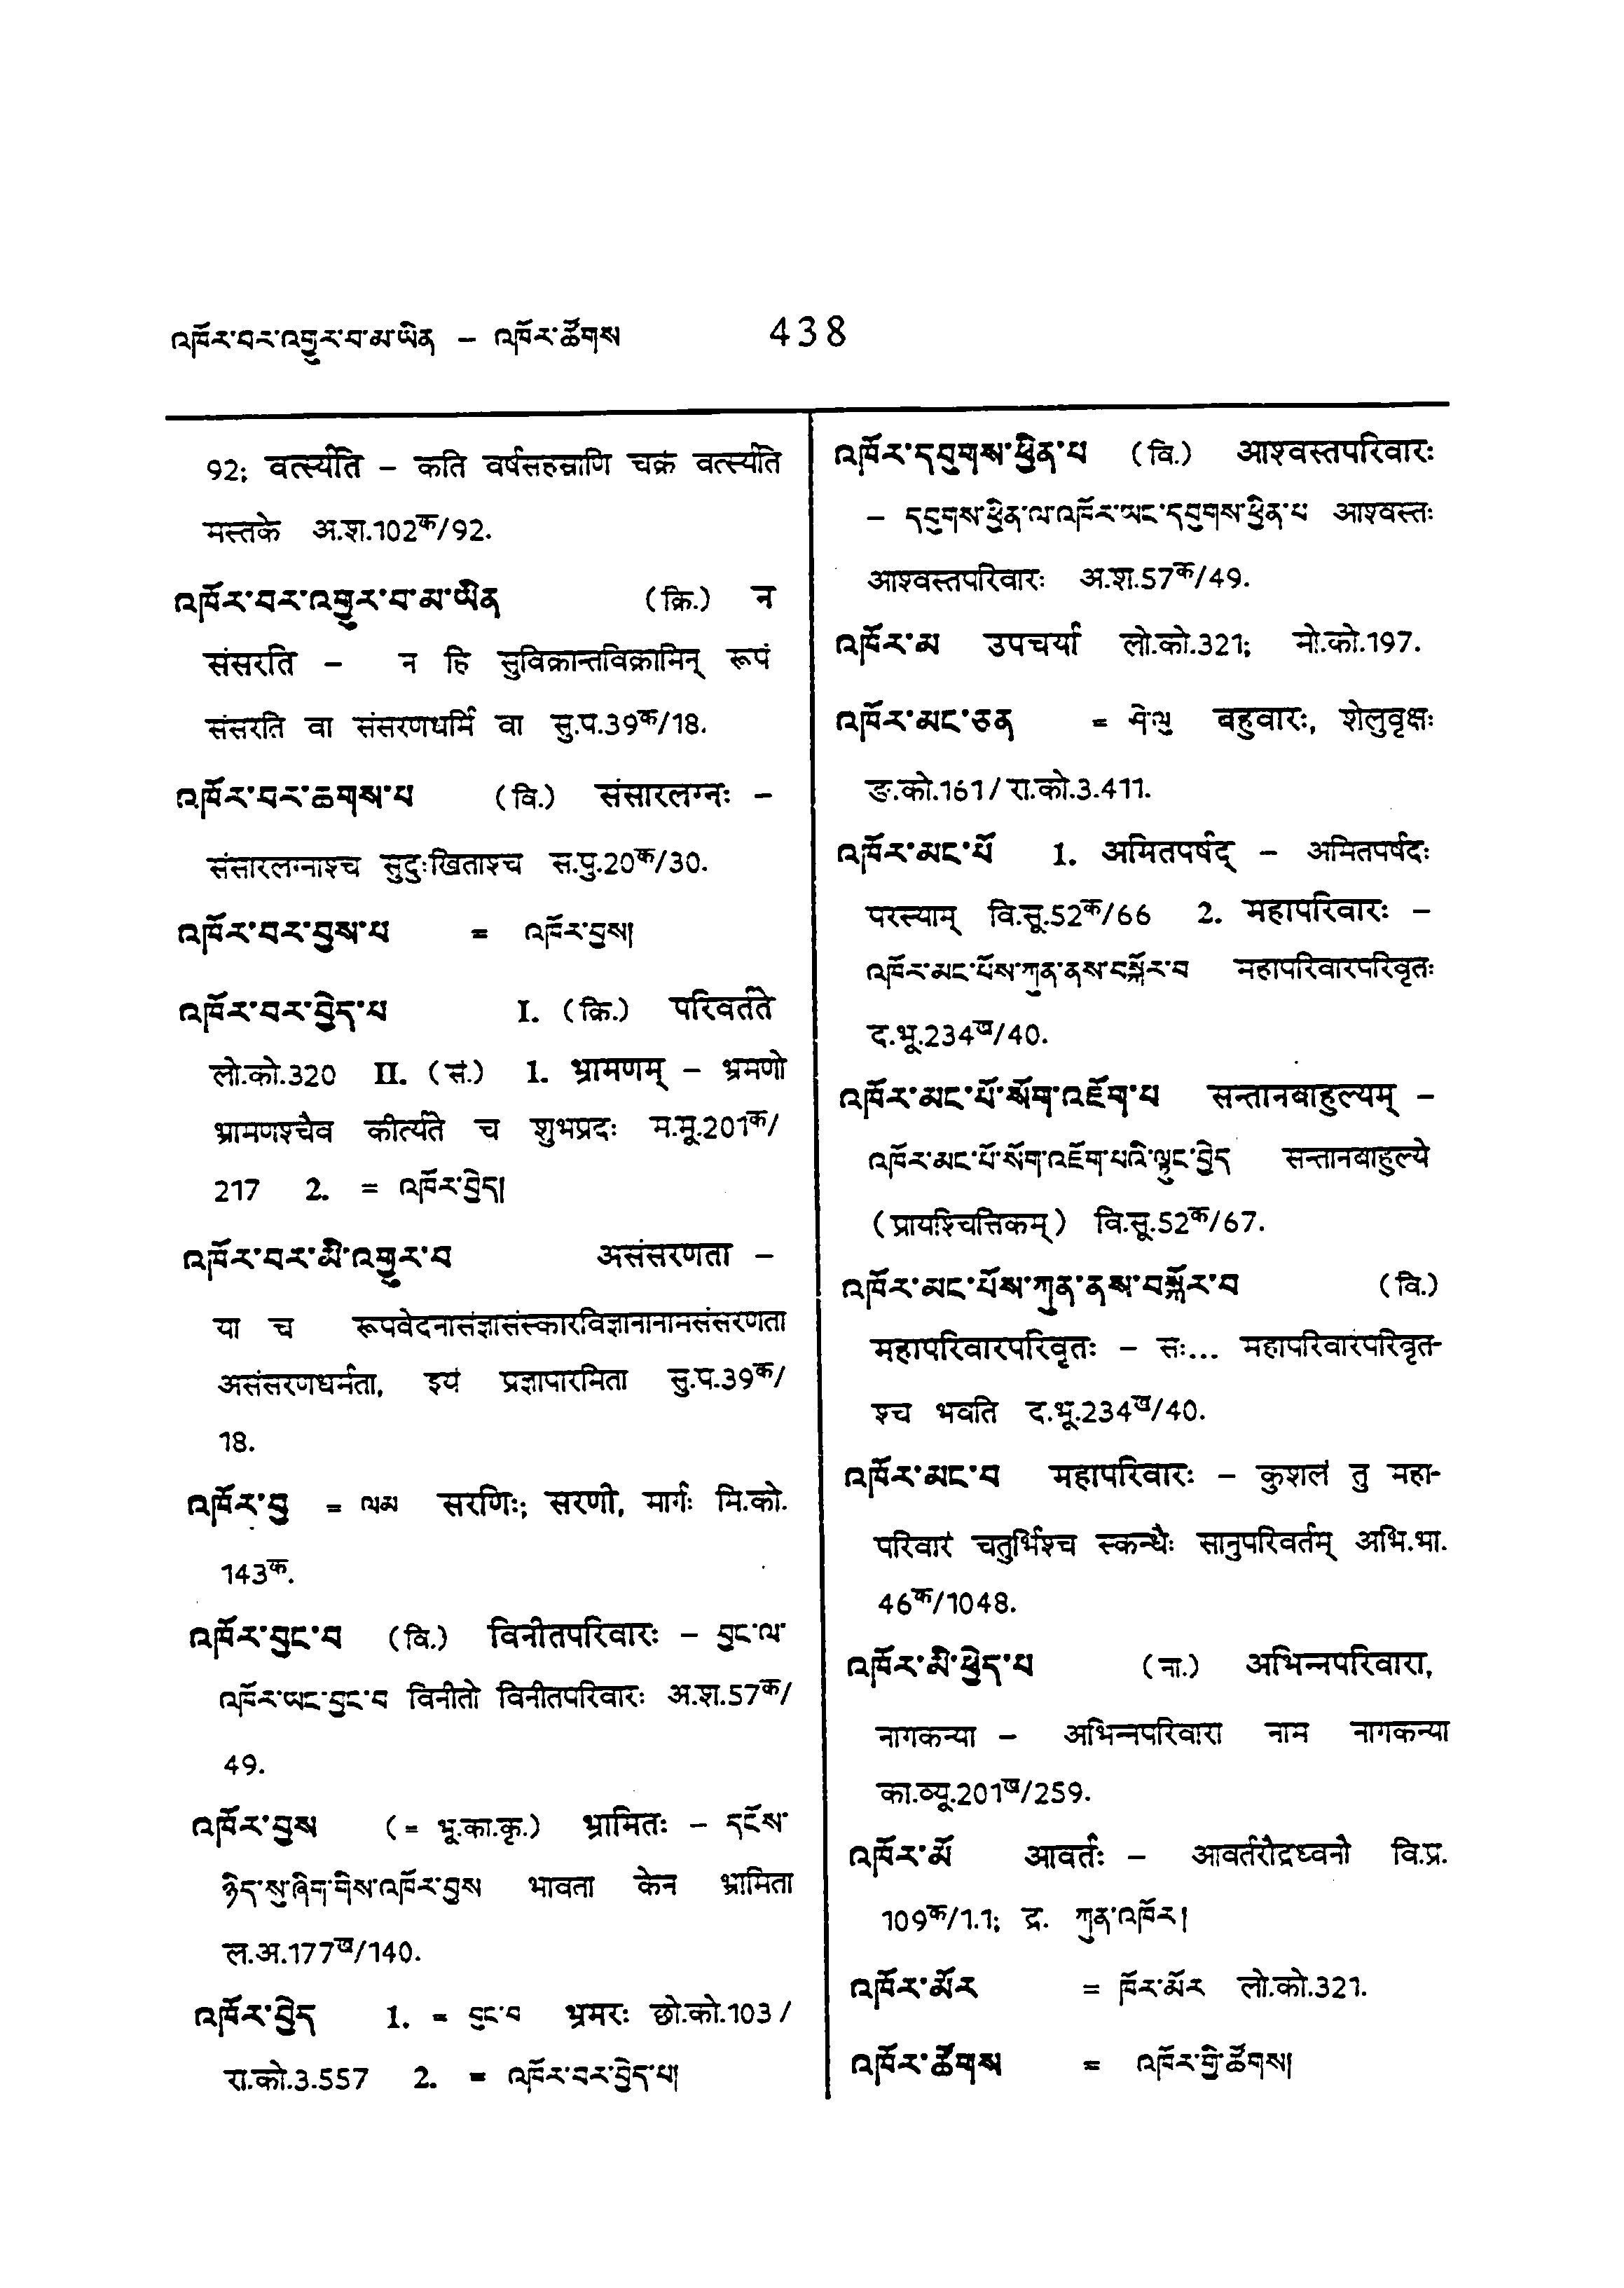 འཁོར་བར་འགྱུར་བ་མ་ཡིན – འཁོར་ཚོགས 438
92; वर्त्स्यति – कति वर्षसहस्राणि चक्रं वर्त्स्यति
मस्तके अ.श.102क/92.
འཁོར་བར་འགྱུར་བ་མ་ཡིན (क्रि.) न
संसरति – न हि सुविक्रान्तविक्रामिन् रूपं
संसरति वा संसरणधर्मि वा सु.प.39क/18.
འཁོར་བར་ཆགས་པ (वि.) संसारलग्नः –
संसारलग्नाश्च सुदुःखिताश्च स.पु.20क/30.
འཁོར་བར་བྱས་པ = འཁོར་བྱས།
འཁོར་བར་བྱེད་པ I. (क्रि.) परिवर्तते
लो.को.320 II. (सं.) 1. भ्रामणम् – भ्रमणो
भ्रामणश्चैव कीर्त्यते च शुभप्रदः म.मू.201क/
217 2. = འཁོར་བྱེད།
འཁོར་བར་མི་འགྱུར་བ असंसरणता –
या च रूपवेदनासंज्ञासंस्कारविज्ञानानामसंसरणता
असंसरणधर्मता, इयं प्रज्ञापारमिता सु.प.39क/
18.
འཁོར་བུ = ལམ सरणिः; सरणी, मार्गः मि.को.
143क.
འཁོར་བྱང་བ (वि.) विनीतपरिवारः – བྱང་ལ་
འཁོར་ཡང་བྱང་བ विनीतो विनीतपरिवारः अ.श.57क/
49.
འཁོར་བྱས (= भू.का.कृ.) भ्रामितः – དངོས་
ཉིད་སུ་ཞིག་གིས་འཁོར་བྱས भावता केन भ्रामिता
ल.अ.177ख/140.
འཁོར་བྱེད 1. = བུང་བ भ्रमरः छो.को.103/
रा.को.3.557 2. = འཁོར་བར་བྱེད་པ།
འཁོར་དབུགས་ཕྱིན་པ (वि.) आश्वस्तपरिवारः
– དབུགས་ཕྱིན་ལ་འཁོར་ཡང་དབུགས་ཕྱིན་པ आश्वस्तः
आश्वस्तपरिवारः अ.श.57क/49.
འཁོར་མ उपचर्या लो.को.321; मो.को.197.
འཁོར་མང་ཅན = ཤེ་ལུ बहुवारः, शेलुवृक्षः
ङ.को.161/रा.को.3.411.
འཁོར་མང་པོ 1. अमितपर्षद् – अमितपर्षदः
परस्याम् वि.सू.52क/66 2. महापरिवारः –
འཁོར་མང་པོས་ཀུན་ནས་བསྐོར་བ महापरिवारपरिवृतः
द.भू.234ख/40.
འཁོར་མང་པོ་སོག་འཇོག་པ सन्तानबाहुल्यम् –
འཁོར་མང་པོ་སོག་འཇོག་པའི་ལྟུང་བྱེད सन्तानबाहुल्ये
(प्रायश्चित्तिकम्) वि.सू.52क/67.
འཁོར་མང་པོས་ཀུན་ནས་བསྐོར་བ (वि.)
महापरिवारपरिवृतः – सः... महापरिवारपरिवृत-
श्च भवति द.भू.234ख/40.
འཁོར་མང་བ महापरिवारः – कुशलं तु महा-
परिवारं चतुर्भिश्च स्कन्धैः सानुपरिवर्तम् अभि.भा.
46क/1048.
འཁོར་མི་ཕྱེད་པ (ना.) अभिन्नपरिवारा,
नागकन्या – अभिन्नपरिवारा नाम नागकन्या
का.व्यू.201ख/259.
འཁོར་མོ आवर्तः – आवर्तरौद्रध्वनौ वि.प्र.
109क/1.1; द्र. ཀུན་འཁོར།
འཁོར་མོར = ཁོར་མོར लो.को.321.
འཁོར་ཚོགས = འཁོར་གྱི་ཚོགས།